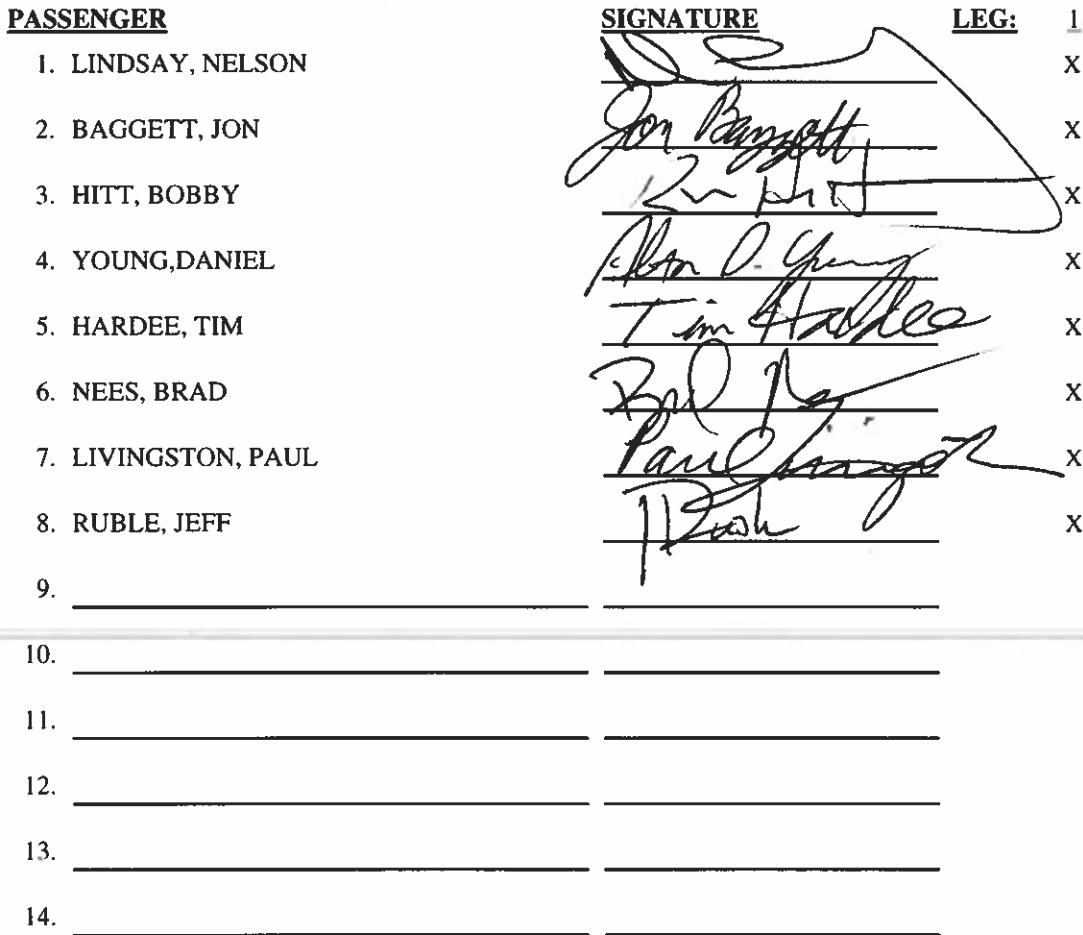 PASSENGER SIGNATURE LEG: 1
1. LINDSAY, NELSON X
2. BAGGETT, JON Jon Baggett X
3. HITT, BOBBY Hitt X
4. YOUNG,DANIEL Young X
5. HARDEE, TIM Tim Hardee X
6. NEES, BRAD Brad X
7. LIVINGSTON, PAUL Paul Livingston X
8. RUBLE, JEFF X
9.
10.
11.
12.
13.
14.